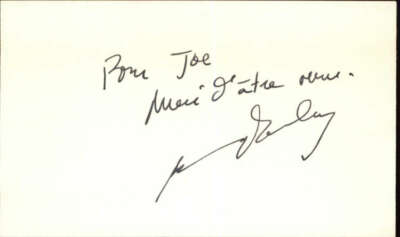 Pour Joe
Merci d'être venu.